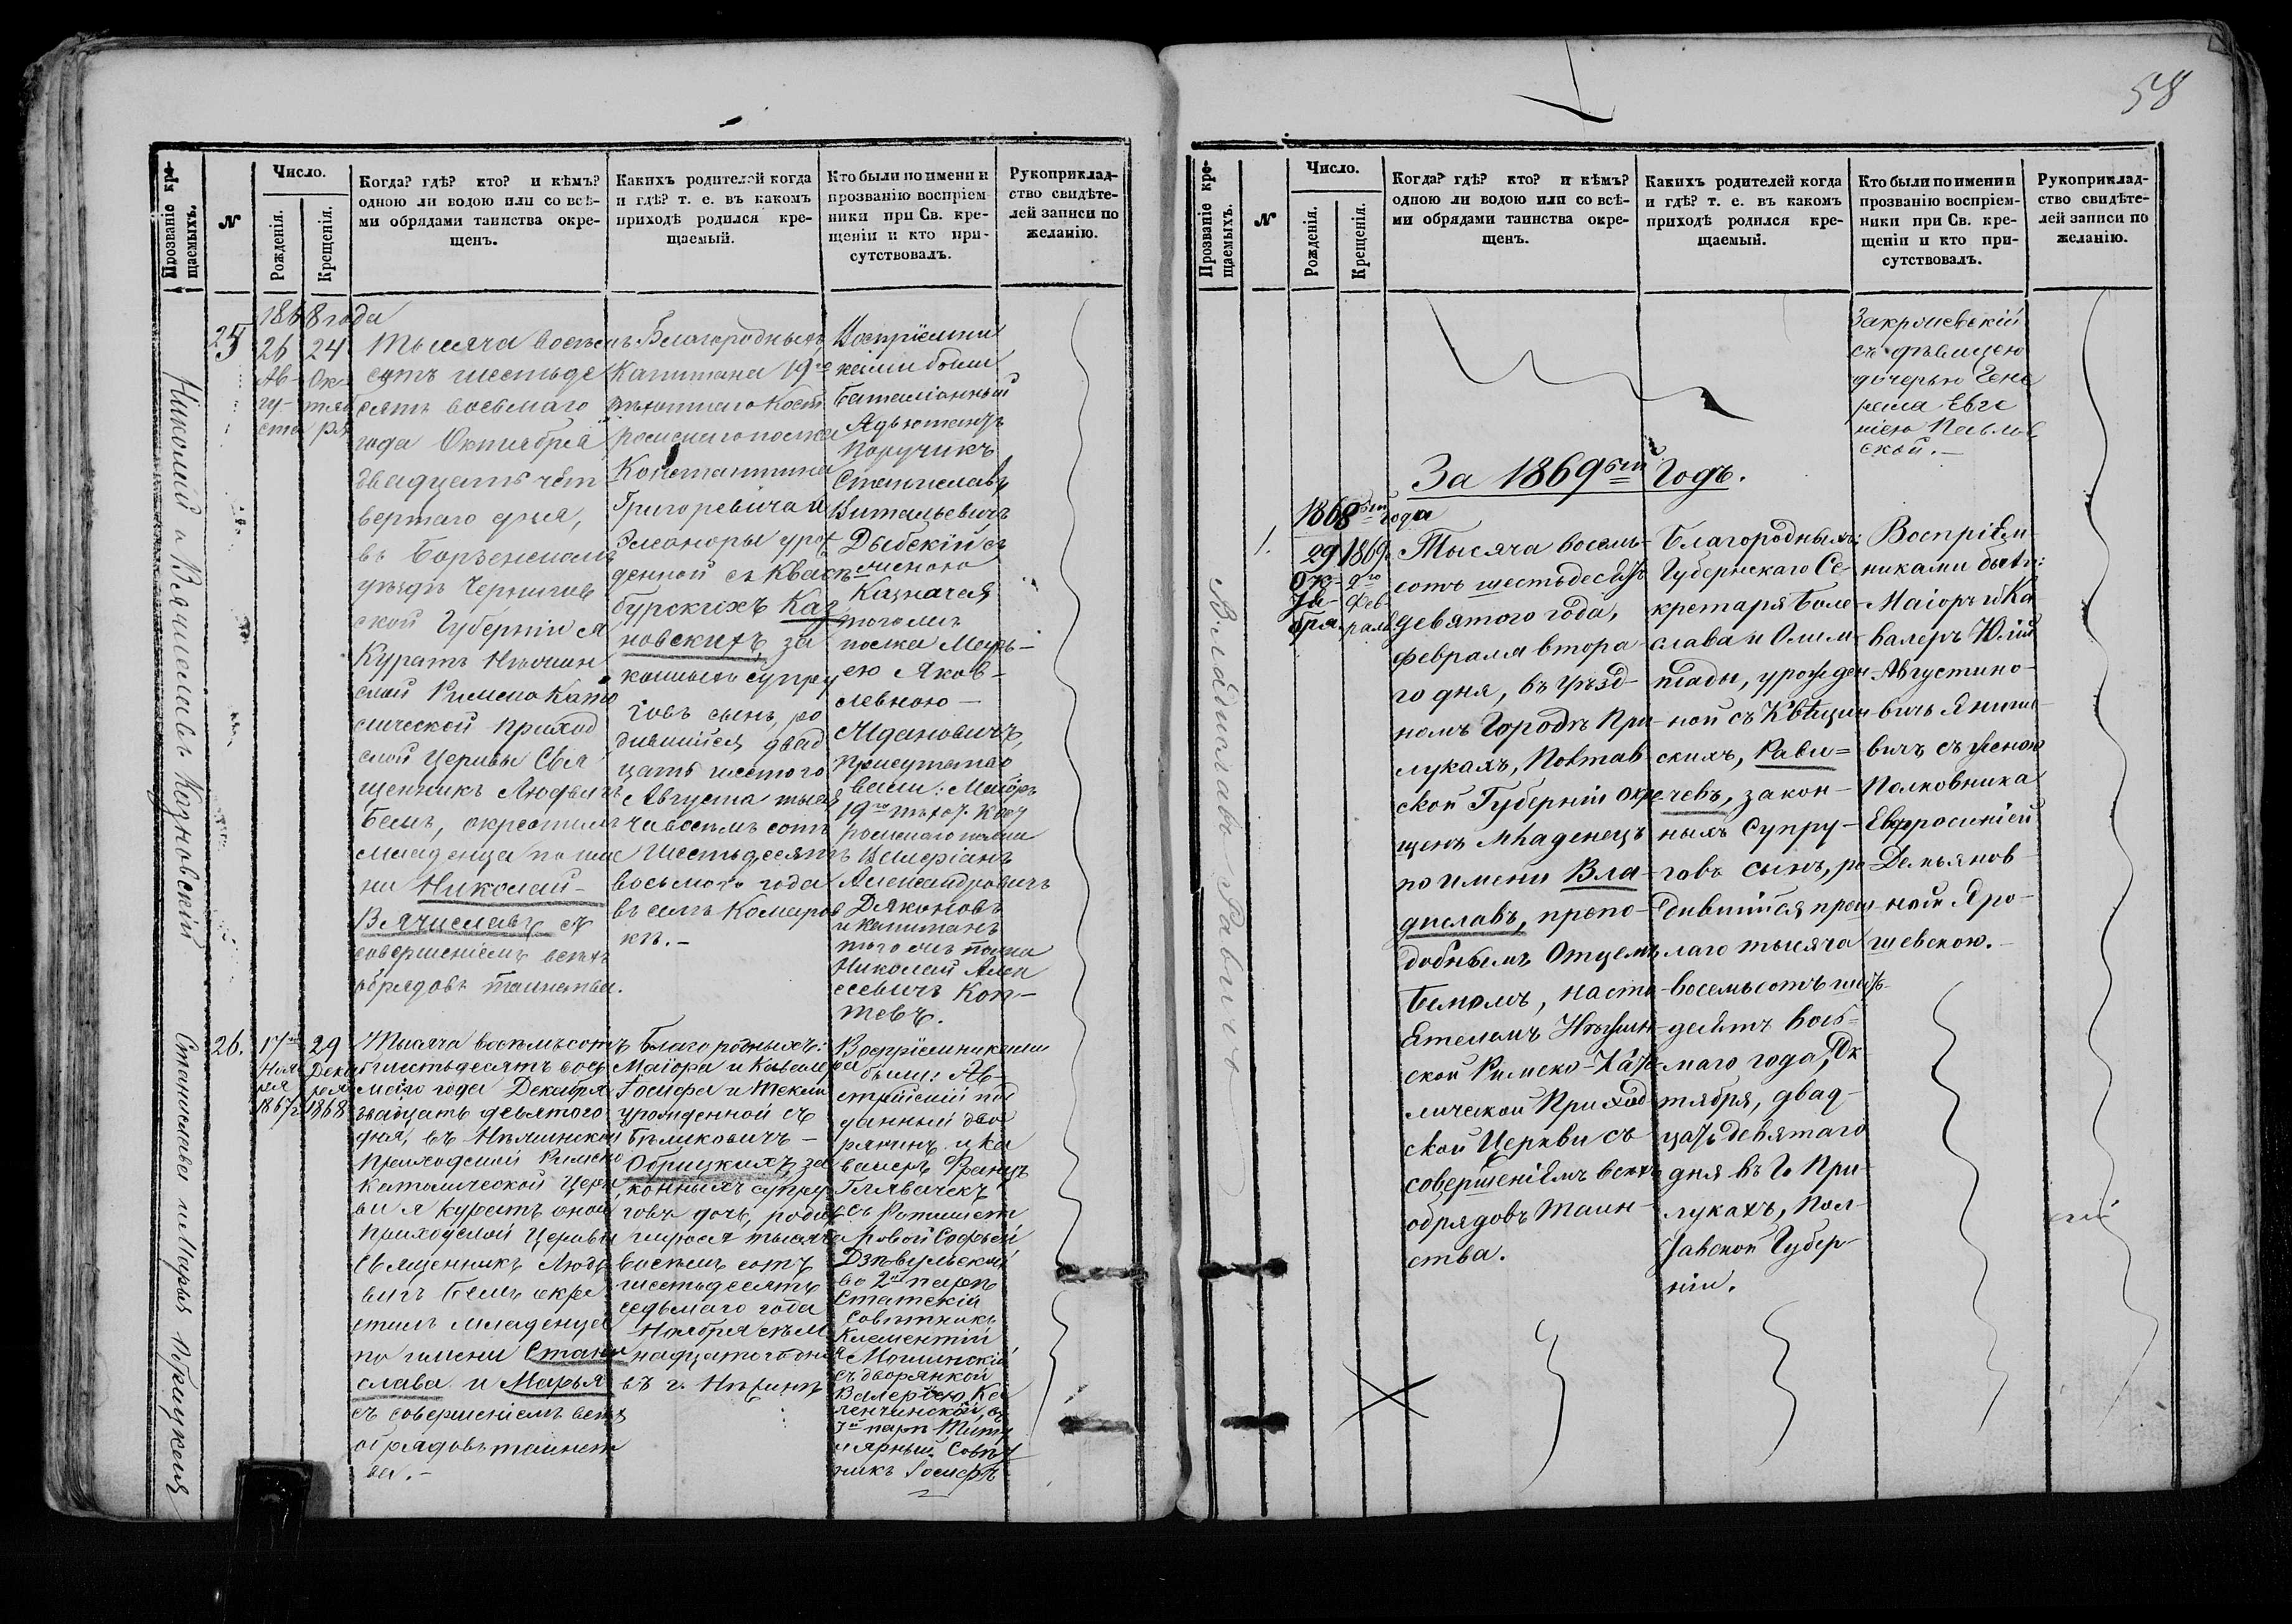 58
Прозваніе кре-
щаемыхъ.
N
Число.
Рожденія.
Крещенія.
Когда? гдѣ? кто? и кѣмъ?
одною ли водою или со всѣ-
ми обрядами таинства окре-
щенъ.
Какихъ родителей когда
и гдѣ? т. е. въ какомъ
приходѣ родился кре-
щаемый.
Кто были по имени и
прозванію воспріем-
ники при Св. кре-
щеніи и кто при-
сутствовалъ.
Рукоприклад-
ство свидѣте-
лей записи по
желанію.
Николай и Вячеславъ Казновскій
25
1868 года
26
Ав-
гу-
ста
24
Ок-
тяб
ря
Тысяча восем
сотъ шестьде
сятъ восьмаго
года Октября
двадцать чет
вертаго дня,
въ Борзенскомъ
уѣздѣ Чернигов
ской Губерніи я
Куратъ Нѣжин
ской Римско Като
лической приход
ской Церкви Свя
щенникъ Людвигъ
Бемъ, окрестилъ
младенца по име
ни Николай-
Вячиславъ съ
совершеніемъ всѣхъ
обрядовъ таинства.
Благородныхъ
Капитана 19го
пѣхотнаго Кост
ромскаго полка
Константина
Григоревича и
Элеоноры урож
денной съ Квасъ
бурскихъ Каз
новскихъ, за
конныхъ супру
говъ сынъ, ро
дившійся двад
цать шестого
Августа тыся
ча восемъ сотъ
шестьдесятъ
восьмого года
въ селѣ Комаров
кѣ.-
Воспріемни
ками были
баталіонный
Адъютантъ
поручикъ
Станиславъ
Витальевичъ
Дыбскій съ
женою
Казначея
того жъ
полка Марь-
ею Яков-
левною -
Ждановичъ,
присутство
вали: Маіоръ
19го пѣхот. Кост
ромскаго полка
Валеріанъ
Александровичъ
Дяконовъ
и капитанъ
того жъ полка
Николай Алек
сеевичъ Коп-
тевъ.
Станислава и Марья Обрицкая
26.
17го
Ноя
бря
1867 г
29
Дека
бря
1868
Тысяча восемъ сотъ
шестьдесятъ вось
маго года Декабря
двадцать девятого
дня, въ Нѣжинской
приходской Римско
Католической Церк
ви я Куратъ оной
приходской Церкви
Священникъ Людъ
вигъ Бемъ окре
стилъ младенца
по имени Стани
слава и Марья
съ совершеніемъ всѣхъ
обрядовъ таинст
ва.-
Благородныхъ:
Маіора и Кавалера
Іосифа и Теклы
урожденной съ
Бѣликовичъ -
Обрицкихъ, за
конныхъ супру
говъ дочь, родив
шаяся тысяча
восемъ сотъ
шестьдесятъ
седьмаго года
Ноября семъ
надцатого дня
въ г. Нѣжинѣ
Воспріемниками
были: Ав-
стрійскій под
данный дво
рянинъ и ка
валеръ Францъ
Главачекъ
съ Ротмист
ровой Софьей
во 2й парѣ
Статскій
Совѣтникъ
Клементій
съ дворянкой
Валеріею
3й парѣ Титу
лярный Совѣт
никъ Іосифъ
Прозваніе кре-
щаемыхъ.
N
Число.
Рожденія.
Крещенія.
Когда? гдѣ? кто? и кѣмъ?
одною ли водою или со всѣ-
ми обрядами таинства окре-
щенъ.
Какихъ родителей когда
и гдѣ? т. е. въ какомъ
приходѣ родился кре-
щаемый.
Кто были по имени и
прозванію воспріем-
ники при Св. кре-
щеніи и кто при-
сутствовалъ.
Рукоприклад-
ство свидѣте-
лей записи по
желанію.
Закржевскій
съ дѣвицею
дочерью Гене
рала Евге
ніею Павлов
ской.-
За 1869ый Годъ.
Владиславъ Равичъ
1.
1868ый года
29
Ок-
тя-
бря.
1869.
2го
Фев-
раля
Тысяча восемь-
сотъ шестьдесятъ
девятого года,
февраля второ-
го дня, въ уѣзд-
номъ Городѣ При-
лукахъ, Полтав
ской Губерніи окре
щенъ младенецъ
по имени Вла-
диславъ, препо-
добнымъ Отцемъ
Бемомъ, насто-
ятелемъ Нѣжин-
ской Римско-Като
лической Приход
ской Церкви съ
совершеніемъ всѣхъ
обрядовъ таин-
ства.
Благородныхъ:
Губернскаго Се-
кретаря Боле-
слава и Олим-
піады, урожден
ной съ Квѣцин
скихъ, Рави=
чевъ, закон-
ныхъ супру-
говъ сынъ, ро
дившійся прош-
лаго тысяча
восемьсотъ шесть
десятъ вось-
маго года, Ок
тября, двад-
цать девятаго
дня въ Г. При-
лукахъ, Пол-
тавской Губер-
ніи.
Воспріем-
никами были:
Маіоръ и Ка
валеръ Юлій
Августино-
вичъ Яниш
вичъ съ женою
Полковника
Евфросиніей
Демьянов-
ной Яро-
шевскою.-